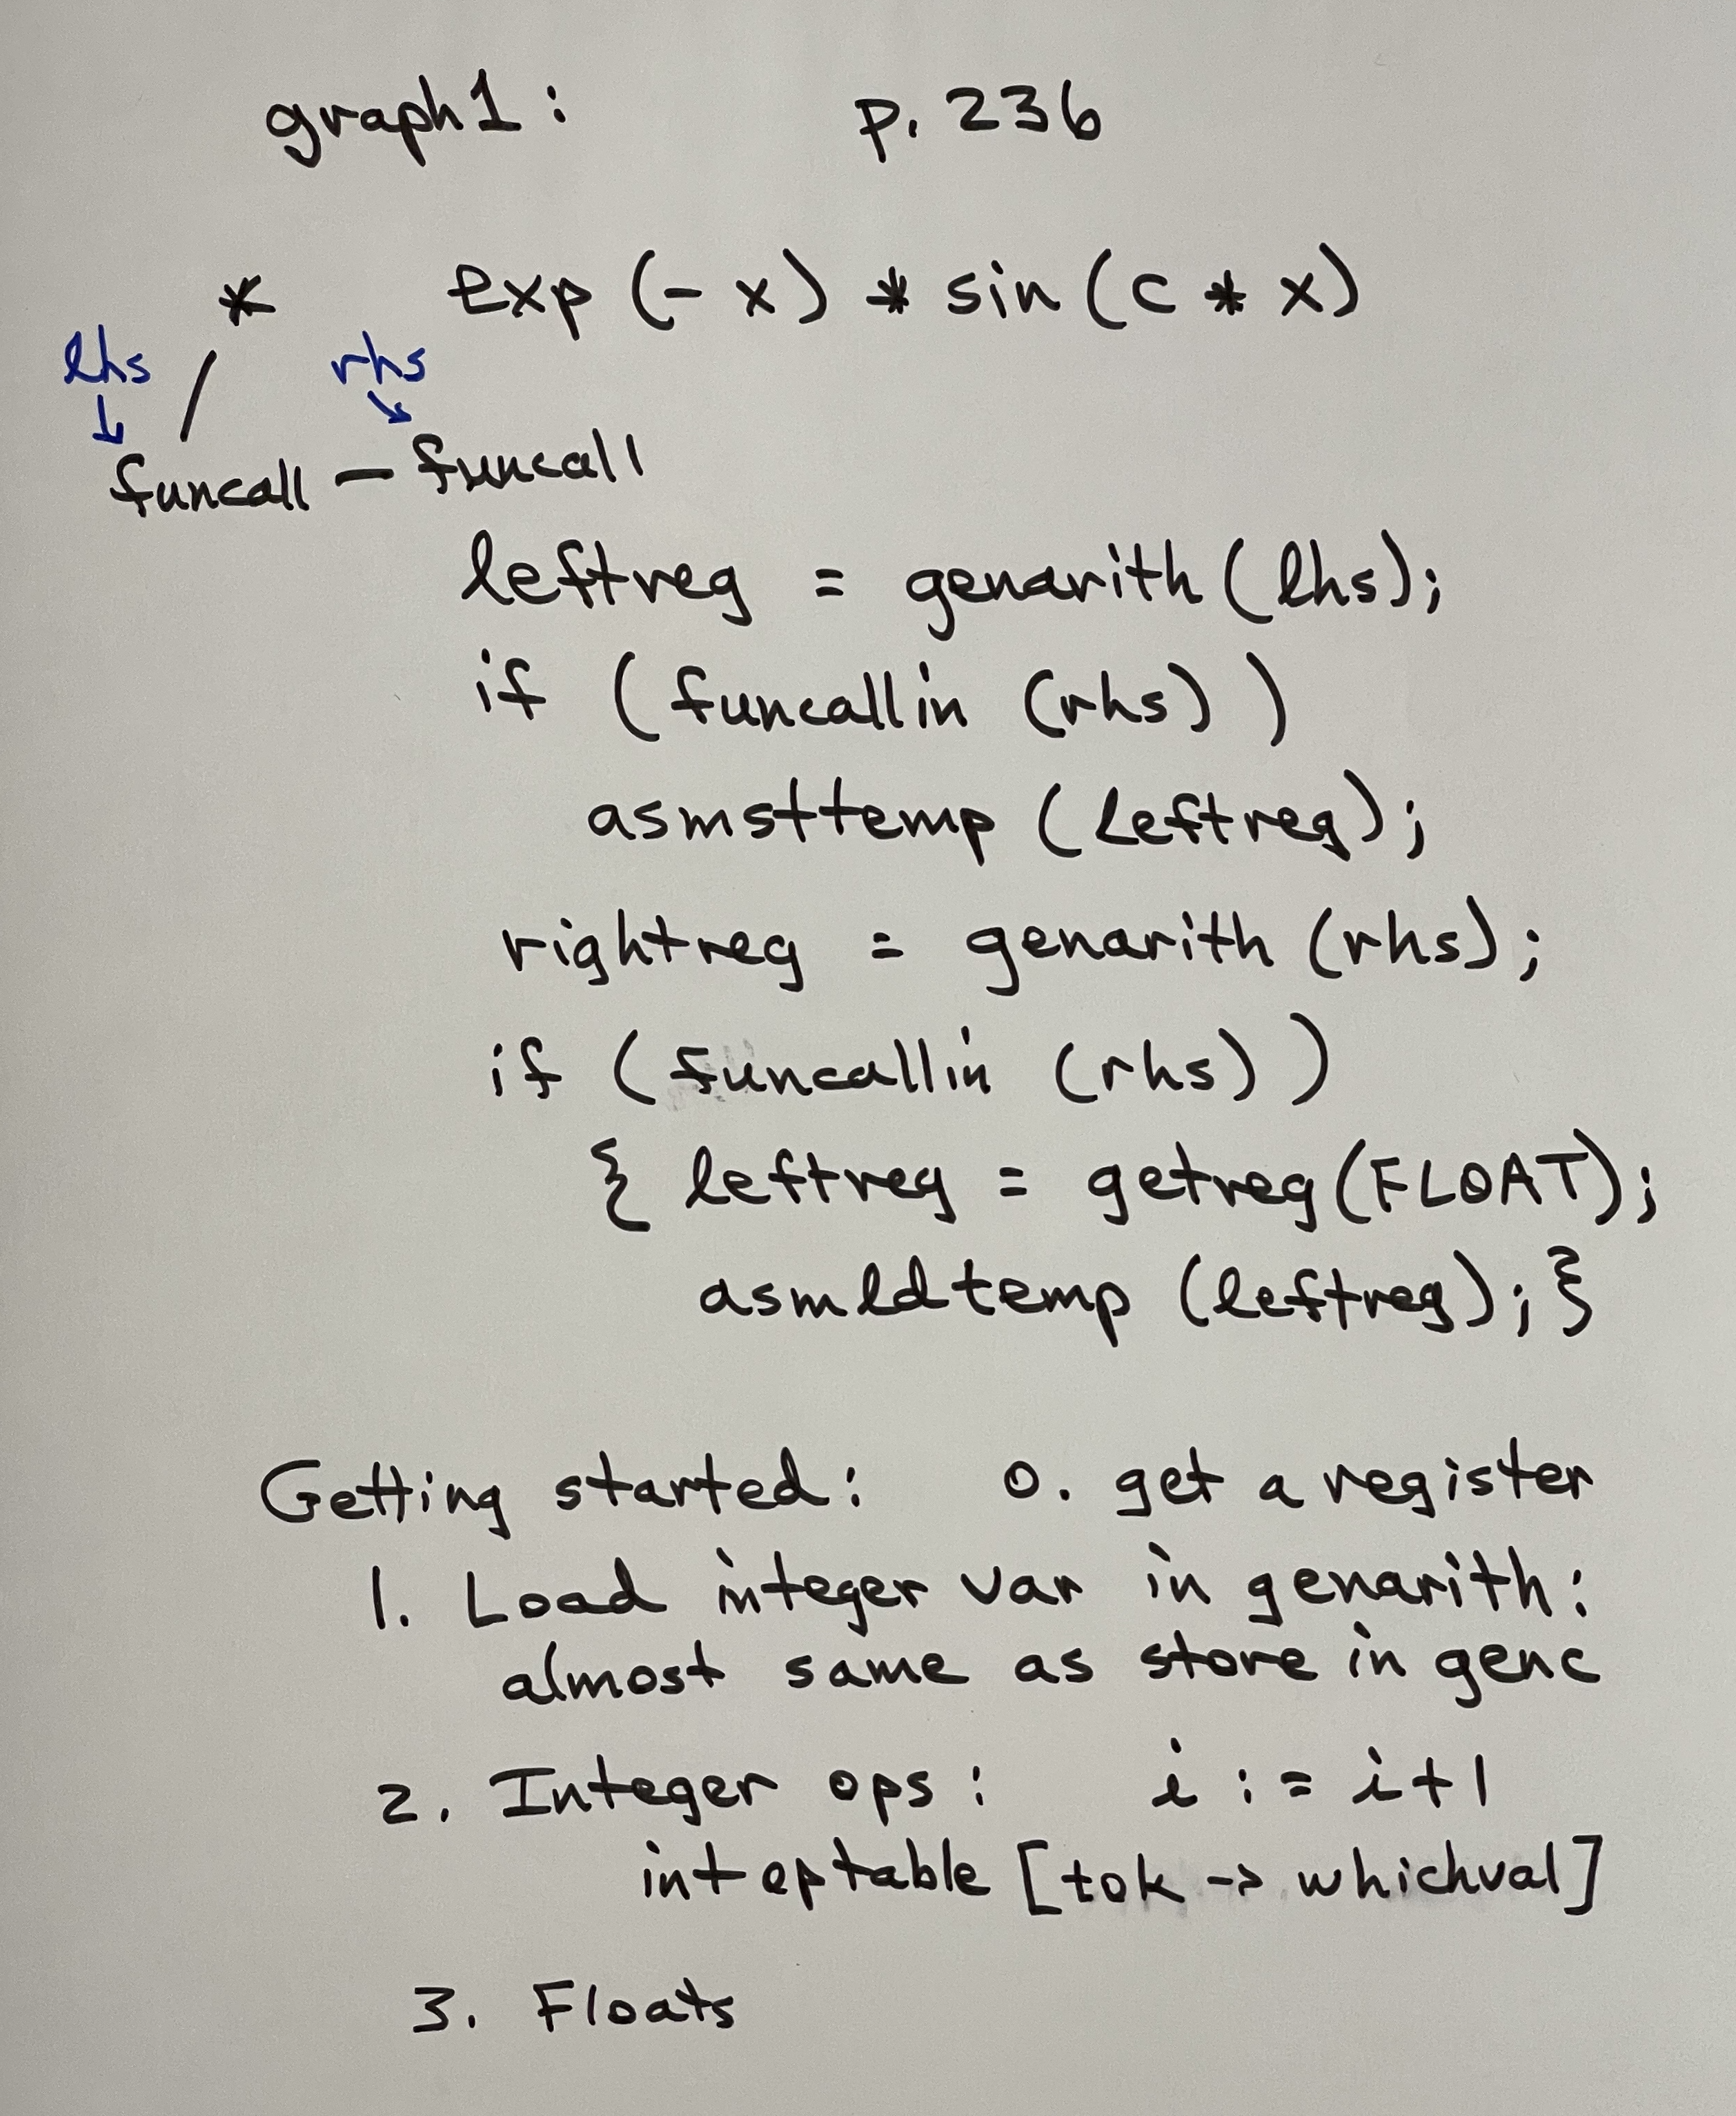 graph1: p. 236
* exp (- x) * sin (c * x)
lhs rhs
funcall — funcall
leftreg = genarith (lhs);
if (funcallin (rhs))
asmsttemp (leftreg);
rightreg = genarith (rhs);
if (funcallin (rhs))
{ leftreg = getreg (FLOAT);
asmldtemp (leftreg); }
Getting started: 0. get a register
1. Load integer var in genarith:
almost same as store in genc
2. Integer ops: i := i+1
intoptable [tok -> whichval]
3. Floats